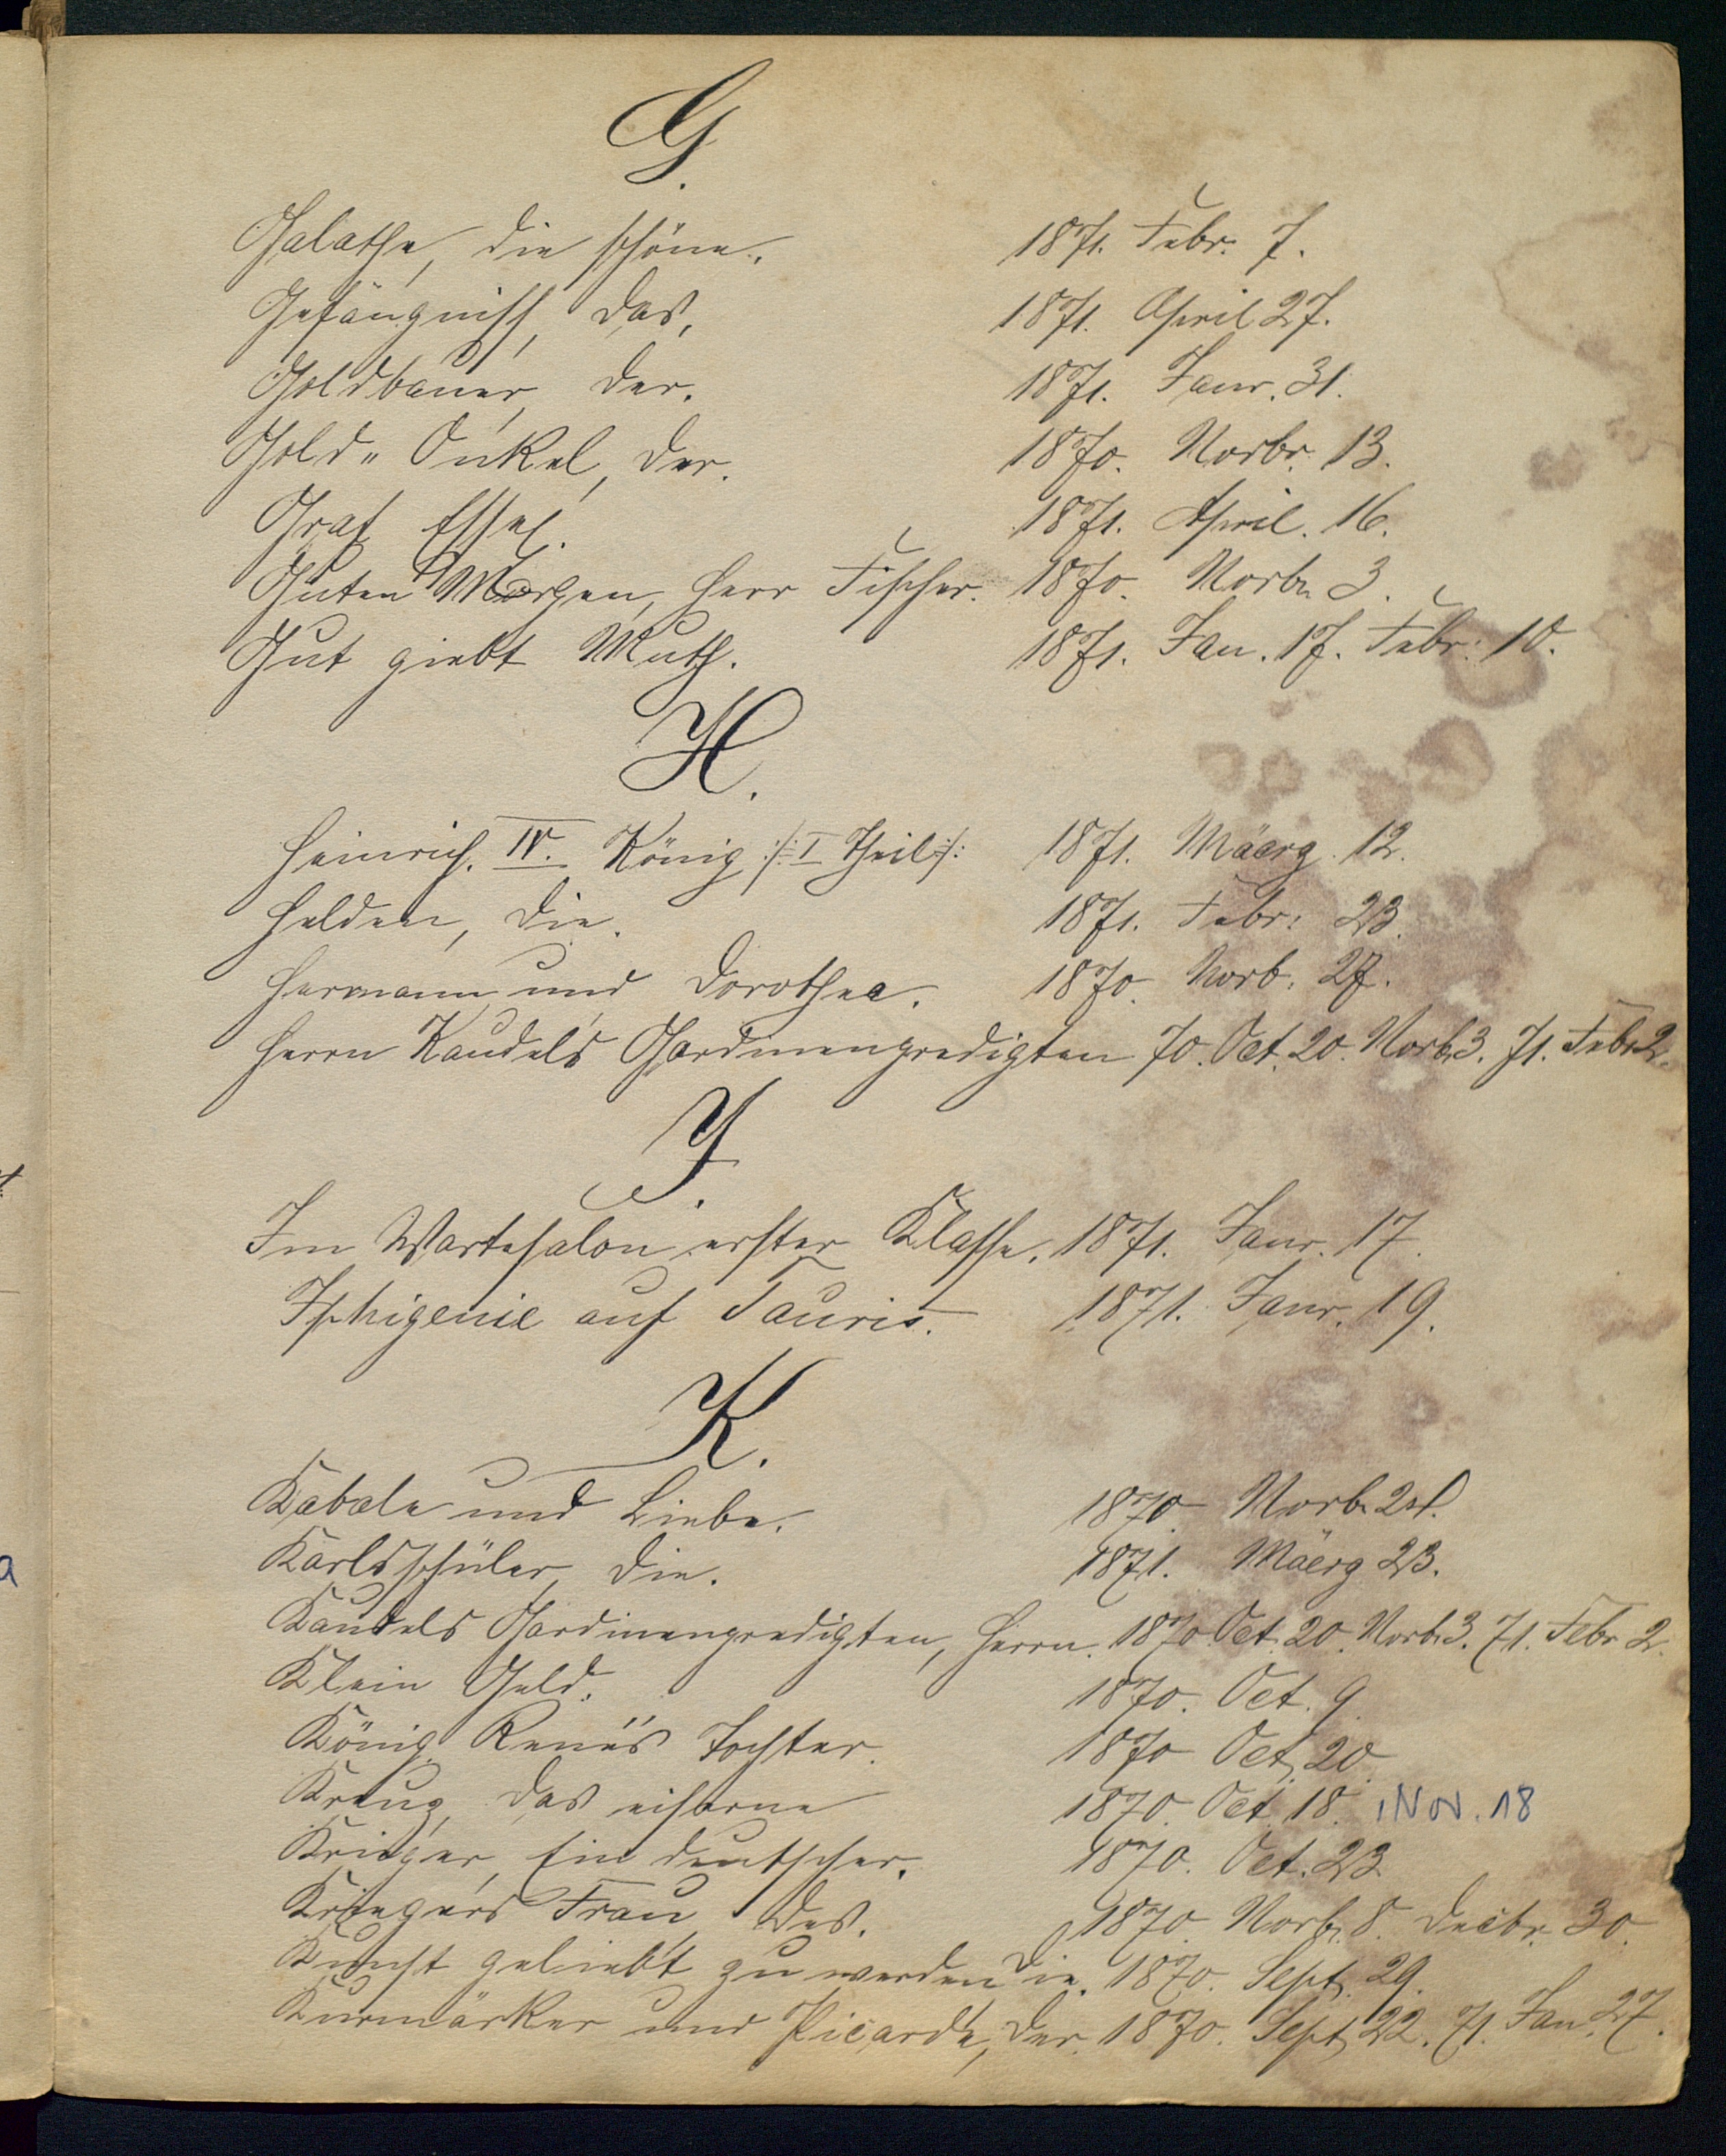 G.
Galathe, die schöne. 1871. Febr. 7.
Gefängniß, das, 1871. April 27.
Goldbauer, der. 1871. Janr. 31.
Gold„ Onkel, der. 1870. Novbr. 13.
Graf Essex. 1871. April. 16.
Guten Morgen, Herr Fischer. 1870. Novbr. 3.
Gut giebt Muth. 1871. Jan. 17. Febr: 10.
H.
Heinrich. IV. König /: I Theil :/: 1871. Määrz. 12.
Helden, die. 1871. Febr: 23.
Hermann und Dorothea. 1870. Novb. 27.
Herrn Kaudels Gardinenpredigten 70. Oct. 20. Novb. 3. 71. Febr 2.
J.
Im Wartesalon erster Klasse. 1871. Janr. 17.
Iphigenie auf Tauris. 1871. Janr. 19.
K.
Kabale und Liebe. 1870. Novb.
Karlsschüler, die. 1871. Määrz 23.
Kaudels Gardinenpredigten, Herrn. 1870. Oct. 20. Novb. 3. 71. Febr 2.
Klein Geld. 1870. Oct. 9.
König Renés Tochter. 1870 Oct. 20.
Kreuz, das eiserne 1870. Oct. 18. 1 Nov. 18
Krieger, Ein deutscher. 1870. Oct. 23.
Kriegers Frau, des. 1870. Novbr. 8. Decbr. 30.
Kunst geliebt zu werden, die. 1870. Sept. 29.
Kurmärker und Picarde, der. 1870. Sept. 22. 71. Jan. 27.